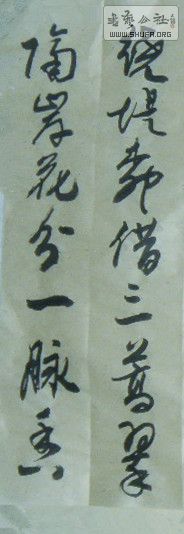 绕堤柳借三篙翠
隔岸花分一脉香
书艺公社
WWW.SHUFA.ORG